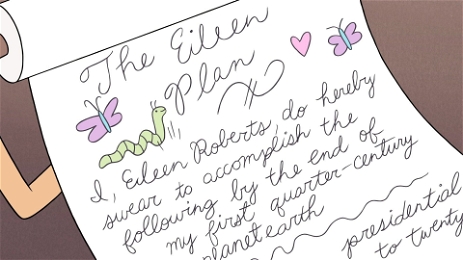 The Eileen
Plan
I, Eileen Roberts, do hereby
swear to accomplish the
following by the end of
my first quarter-century
planet earth
presidential
to twenty